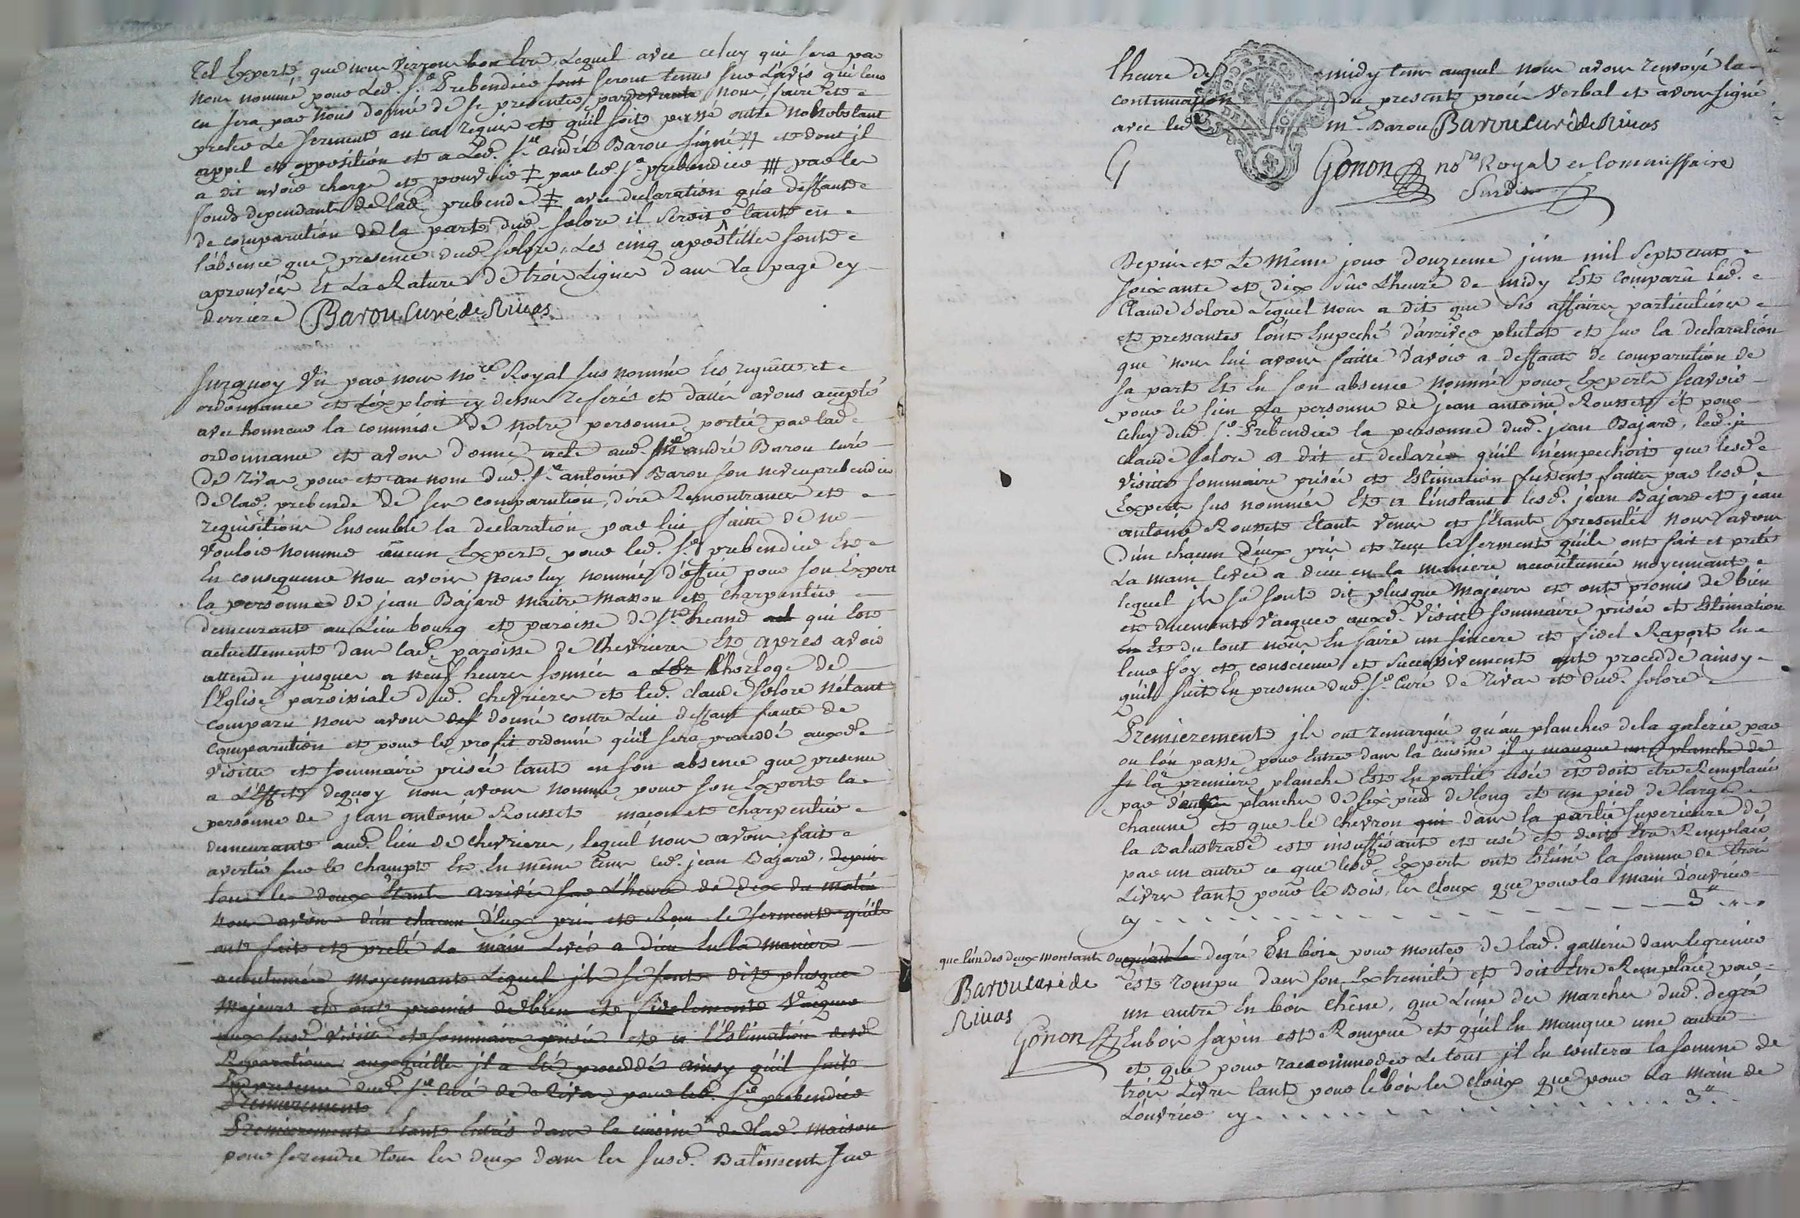 tel Experts que nous verrons bon être, Lequel avec celuy qui sera par
nous nommé pour Led. Sr. Prebendier seront tenus sur L'avis qui leur
en sera par nous donné de se presenter pardevant nous faire et
preter Le serment au cas requis et qu'il soit passé outre nobnobstant
appel et opposition et a Led. Sr. andré Barou signé et dont il
a dit avoir charge et pouvoir par led Sr. prebendier par les
fonds dependants de lad. prebende avec declaration qu'a deffaut
de comparution de la part dud. solore il seroit tant en
l'absence que presence dud. solore, Les cinq apostilles sont
aprouvées Et La Rature de trois Lignes dans la page cy
derriere Barou Curé de Rivas
surquoy Vu par nous nore. Royal sus nommé les requêtte et
ordonnance et L'exploit cy dessus referés et dattés avons accepté
avec honneur la commise de notre personne portée par lad.
ordonnance et avons donné acte aud. Sr. andré Barou curé
de Rivas pour et au nom dud. Sr. antoine Barou son neveu prebendier
de lad. prebende de ses comparution, dire Remontrances et
requisitions Ensemble la declaration par lui faitte de ne
vouloir nommer aucun Expert pour led. Sr. prebendier Et
En consequence nous avons pour luy nommés d'office pour son Expert
la personne de jean Bajard maître masson et charpentier
demeurant au Lieu bourg et paroisse de St. heand qui Est
actuellement dans lad. paroisse de Chevrieres Et après avoir
attendu jusques a neuf heures sonnées a l'horloge de
l'Eglise paroissiale dud. chevrieres et led. claude solore n'étant
comparu nous avons donné contre Lui deffaut faute de
comparution et pour le profit ordonné qu'il sera procédé auxd.
visitte et sommaire prisée tant en son absence que presence
a L'Effet dequoy nous avons nommé pour son Experte la
personne de jean antoine Rousset macon et charpentier
demeurant aud. lieu de chevrieres, lequel nous avons fait
avertir sur le champt Et En même tems led. jean Bajard, depuis
tous les deux Etant arrivés sur L'heure de dix du matin
nous avons d'un chacun d'Eux pris et Reçu le serment qu'ils
ont fait et preté La main Levée a dieu En la maniere
accoutumée moyennant Lequel ils se sont dits plusque
majeurs et ont promis de bien et fidelement Vacquer
aux susd. visitte et sommaire prisée et a l'Estimation desd.
Reparations auxquelles il a été procedé ainsy qu'il suit
En presence dud. Sr. Curé de Rivas pour led. Sr. prebendier
Premierement
Premierement Etant Entrés dans la cuisine de lad. maison
pour se rendre tous les deux dans les susd. Batiments sur
l'heure de midy tems auquel nous avons renvoyé la
continuation du present procès Verbal et avons signé
avec led mre. Barou Barou Curé de Rivas
Gonon nore Royal et Commissaire
Susdit
Depuis et Le Même jour douzieme juin mil Sept cent
soixante et dix sur L'heure de midy Est comparû led.
Claude solore Lequel nous a dit que ses affaires particulieres
et pressantes l'ont Empeché d'arriver plutot et sur la declaration
que nous lui avons faitte d'avoir a deffaut de comparution de
sa part Et En son absence nommé pour Experts sçavoir
pour le sien La personne de jean antoine Rousset et pour
celuy dud. Sr. Prebendier la personne dud. jean Bajard, led.
claude solore a dit et declaré qu'il n'empechoit que lesd.
visitte sommaire prisée et Estimation fussent faittes par lesd.
Experts sus nommés Et a l'instant lesd. jean Bajard et jean
antoine Rousset Etant venus et s'Etant presentés nous avons
d'un chacun d'eux pris et reçu le serment qu'ils ont fait et preté
La main levée a dieu en la maniere accoutumée moyennant
lequel ils se sont dit plusque Majeurs et ont promis de bien
et duement Vacquer auxd. Visitte sommaire prisée et Estimation
Et du tout nous En faire un sincere et fidel Raport En
leur foy et conscience et successivement ont procédé ainsy
qu'il suit En presence dud. Sr. Curé de Rivas et dud. solore
Premierement ils ont remarqué qu'au plancher de la galerie par
ou l'on passe pour Entrer dans la cuisine il y manque un planche de
la premiere planche Est En partie usée et doit etre Remplacée
par d'autre planches de six pieds de long et un pied de large
chacune et que le chevron qui dans la partie superieure de
la Balustrade est insuffisant et usé et doit être Remplacé
par un autre ce que lesd. Expert ont Estimé la somme de trois
Livres tant pour le Bois, les cloux que pour la main d'ouvrier
cy - - - - - - - - - - 3"
que l'un des deux montants du degré En bois pour monter de lad. gallerie dans le grenier
Barou curé de
Rivas
Gonon
est rompu dans son Extremité et doit être Remplacé par
un autre En bois chêne, que L'une des marches dud. degré
En bois sapin est Rompue et qu'il En manque une autre
et que pour raccommoder Le tout il En coûtera la somme de
trois Livres tant pour le bois les cloux que pour La main de
L'ouvrier cy - - - - - - - - - - 3"